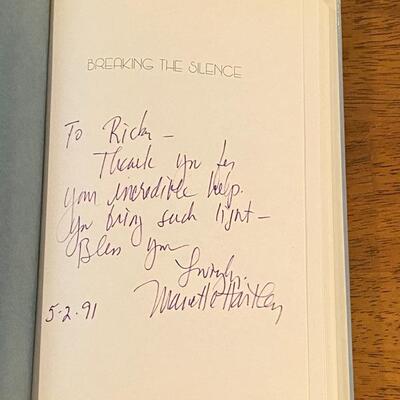 BREAKING THE SILENCE
To Ricky —
Thank you for
your incredible help.
You bring such light —
Bless you
Lovingly,
Mariette Hartley
5-2-91